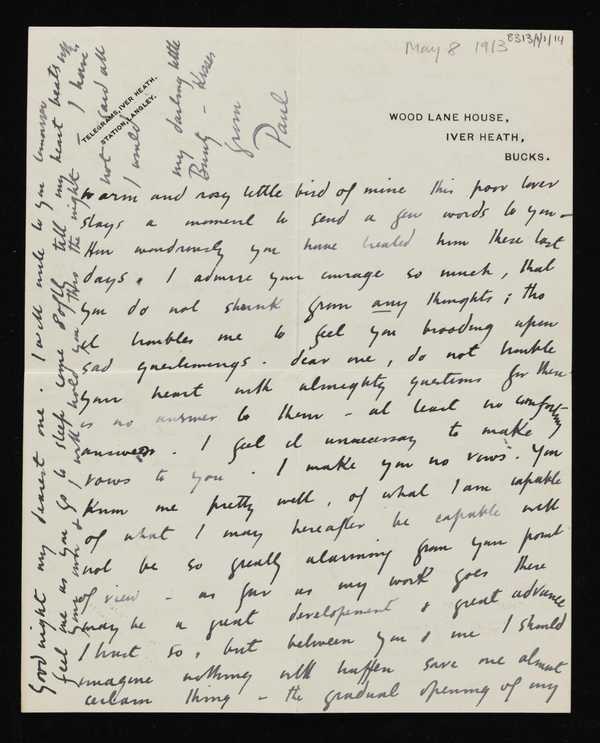 8313/1/1/14
May 8 1913
TELEGRAMS, IVER HEATH.
STATION, LANGLEY.
WOOD LANE HOUSE,
IVER HEATH,
BUCKS.
Warm and rosy little bird of mine this poor lover
stays a moment to send a few words to you –
How wondrously you have treated him these last
days. I admire your courage so much, that
you do not shrink from any thoughts; tho
it troubles me to feel you brooding upon
sad questionings. dear one, do not trouble
your heart with almighty questions for there
is no answer to them – at least no comforting
answers. I feel it unnecessary to make
vows to you. I make you no vows. You
know me pretty well, of what I am capable
of what I may hereafter be capable will
not be so greatly alarming from your point
of view – as far as my work goes there
may be a great developement & great advance
I trust so, but between you & me I should
imagine nothing will happen save one almost
certain thing – the gradual opening of my
Good night my dearest one. I will write to you tomorrow
feel me as you go to sleep come softly tell my heart beats
your own & I will hold you thro the night I have
not said all
I would
my darling little
Bunty – Kisses
from
Paul